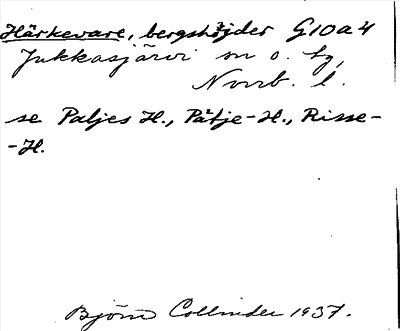 Härkevare, bergshöjder G10a4
Jukkasjärvi sn o. tg,
Norrb. l.
se Paljes H., Påtje-H., Risse-
-H.
Björn Collinder 1937.